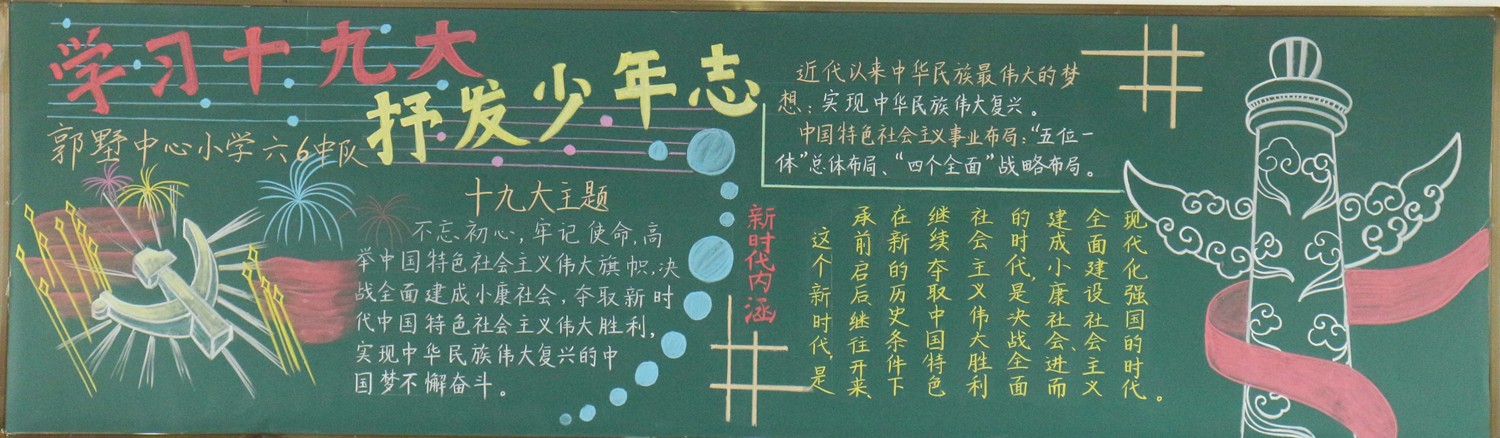 学习十九大
抒发少年志
郭墅中心小学六6中队
十九大主题
不忘初心，牢记使命，高
举中国特色社会主义伟大旗帜，决
战全面建成小康社会，夺取新时
代中国特色社会主义伟大胜利，
实现中华民族伟大复兴的中
国梦不懈奋斗。
近代以来中华民族最伟大的梦
想：实现中华民族伟大复兴。
中国特色社会主义事业布局：“五位一
体”总体布局、“四个全面”战略布局。
新时代内涵
这个新时代，是
承前启后、继往开来、
在新的历史条件下
继续夺取中国特色
社会主义伟大胜利
的时代，是决战全面
建成小康社会、进而
全面建设社会主义
现代化强国的时代。